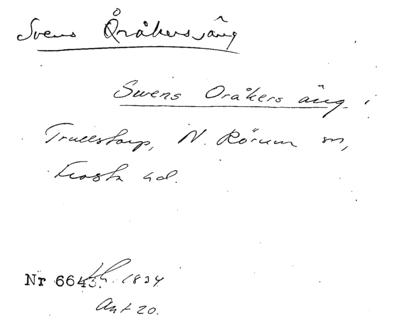 Svens Öråkersäng
Swens Oråkers äng i
Trulstorp, N. Rörum sn,
Frosta hd.
Nr 6643. 1824
Akt 20.